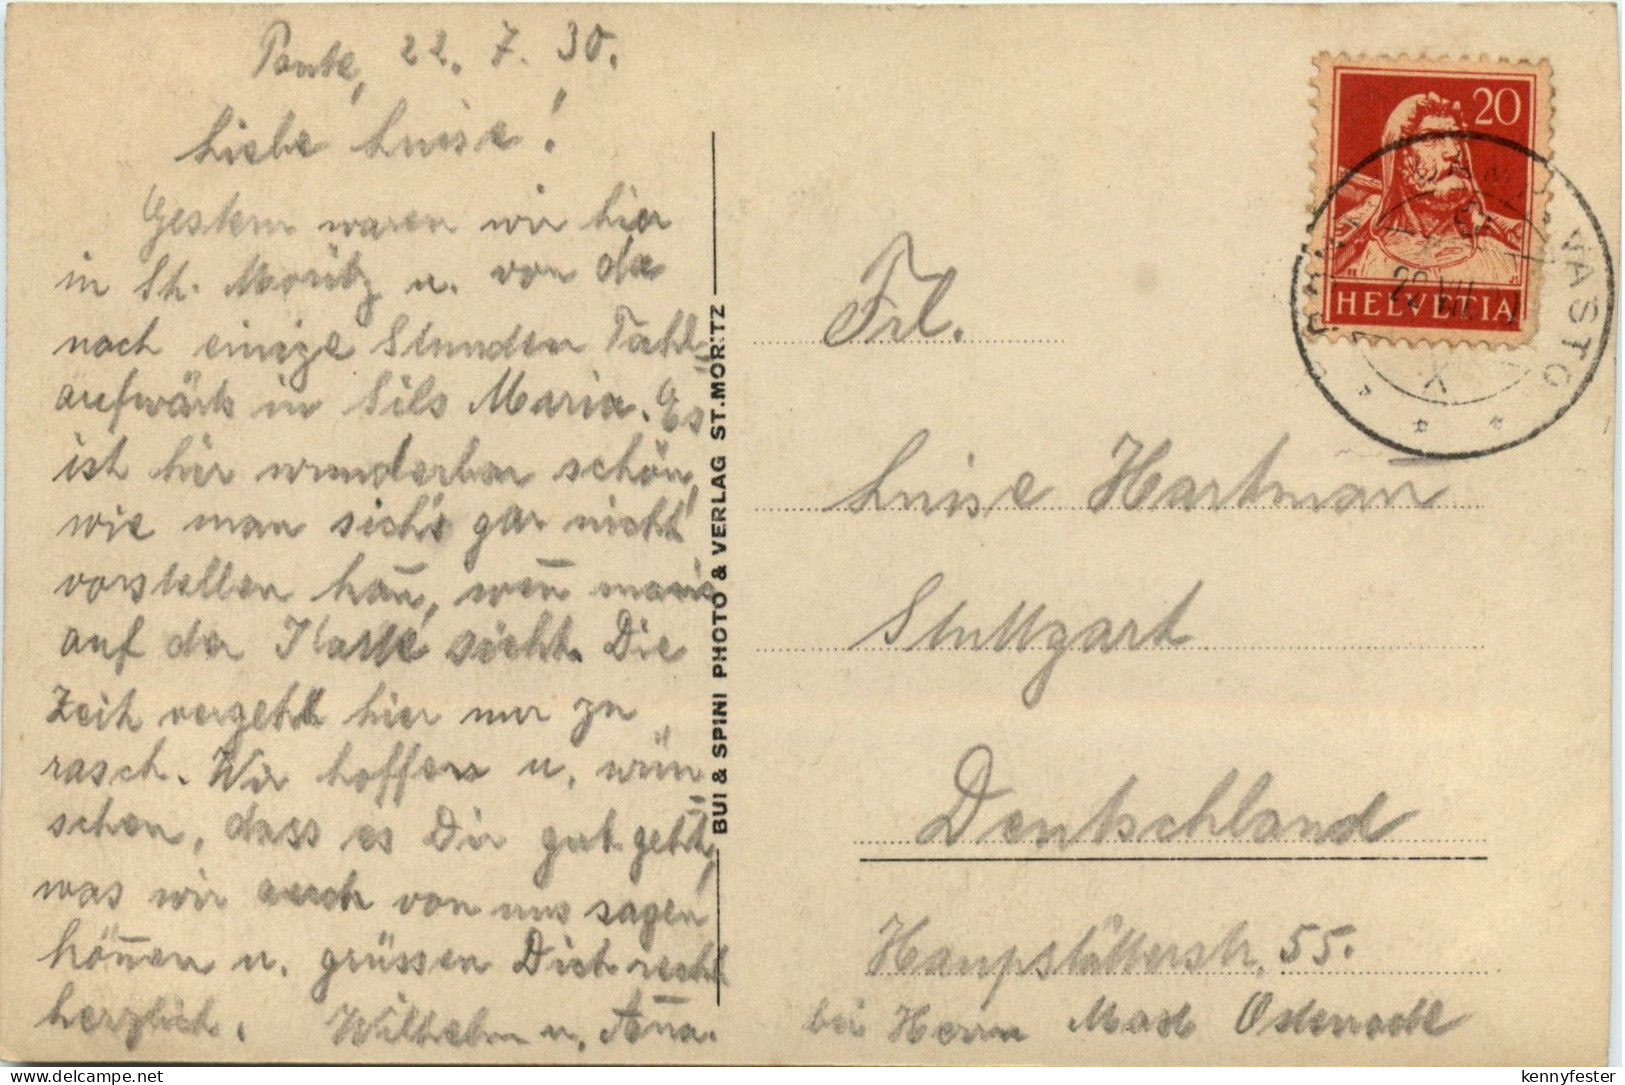 Ponte, 22. 7. 30.
Liebe Luise!
Gestern waren wir hier
in St. Moritz u. von da
nach einige Stunden Tahl-
aufwärts in Sils Maria. Es
ist hir wunderbar schön,
wie man sich's gar nicht
vorstellen kan̅, wen̅ man's
auf der Karte sieht. Die
Zeit vergeht hier nur zu
rasch. Wir hoffen u. wün-
schen, dass es Dir gut geht,
was wir auch von uns sagen
kön̅en u. grüssen Dich recht
herzlich. Wilhelm u. An̅a.
BUI & SPINI PHOTO & VERLAG ST. MORITZ
20
HELVETIA
VASTO
22.VII.
Frl.
Luise Hartman
Stuttgart
Deutschland
Haupstätterstr. 55.
bei Herrn